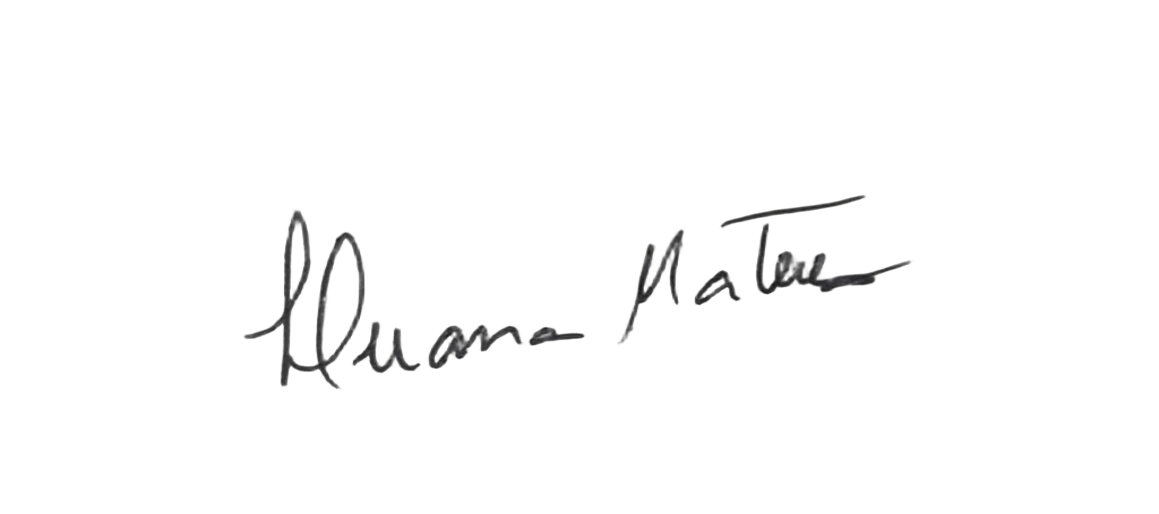 Luana Mateus